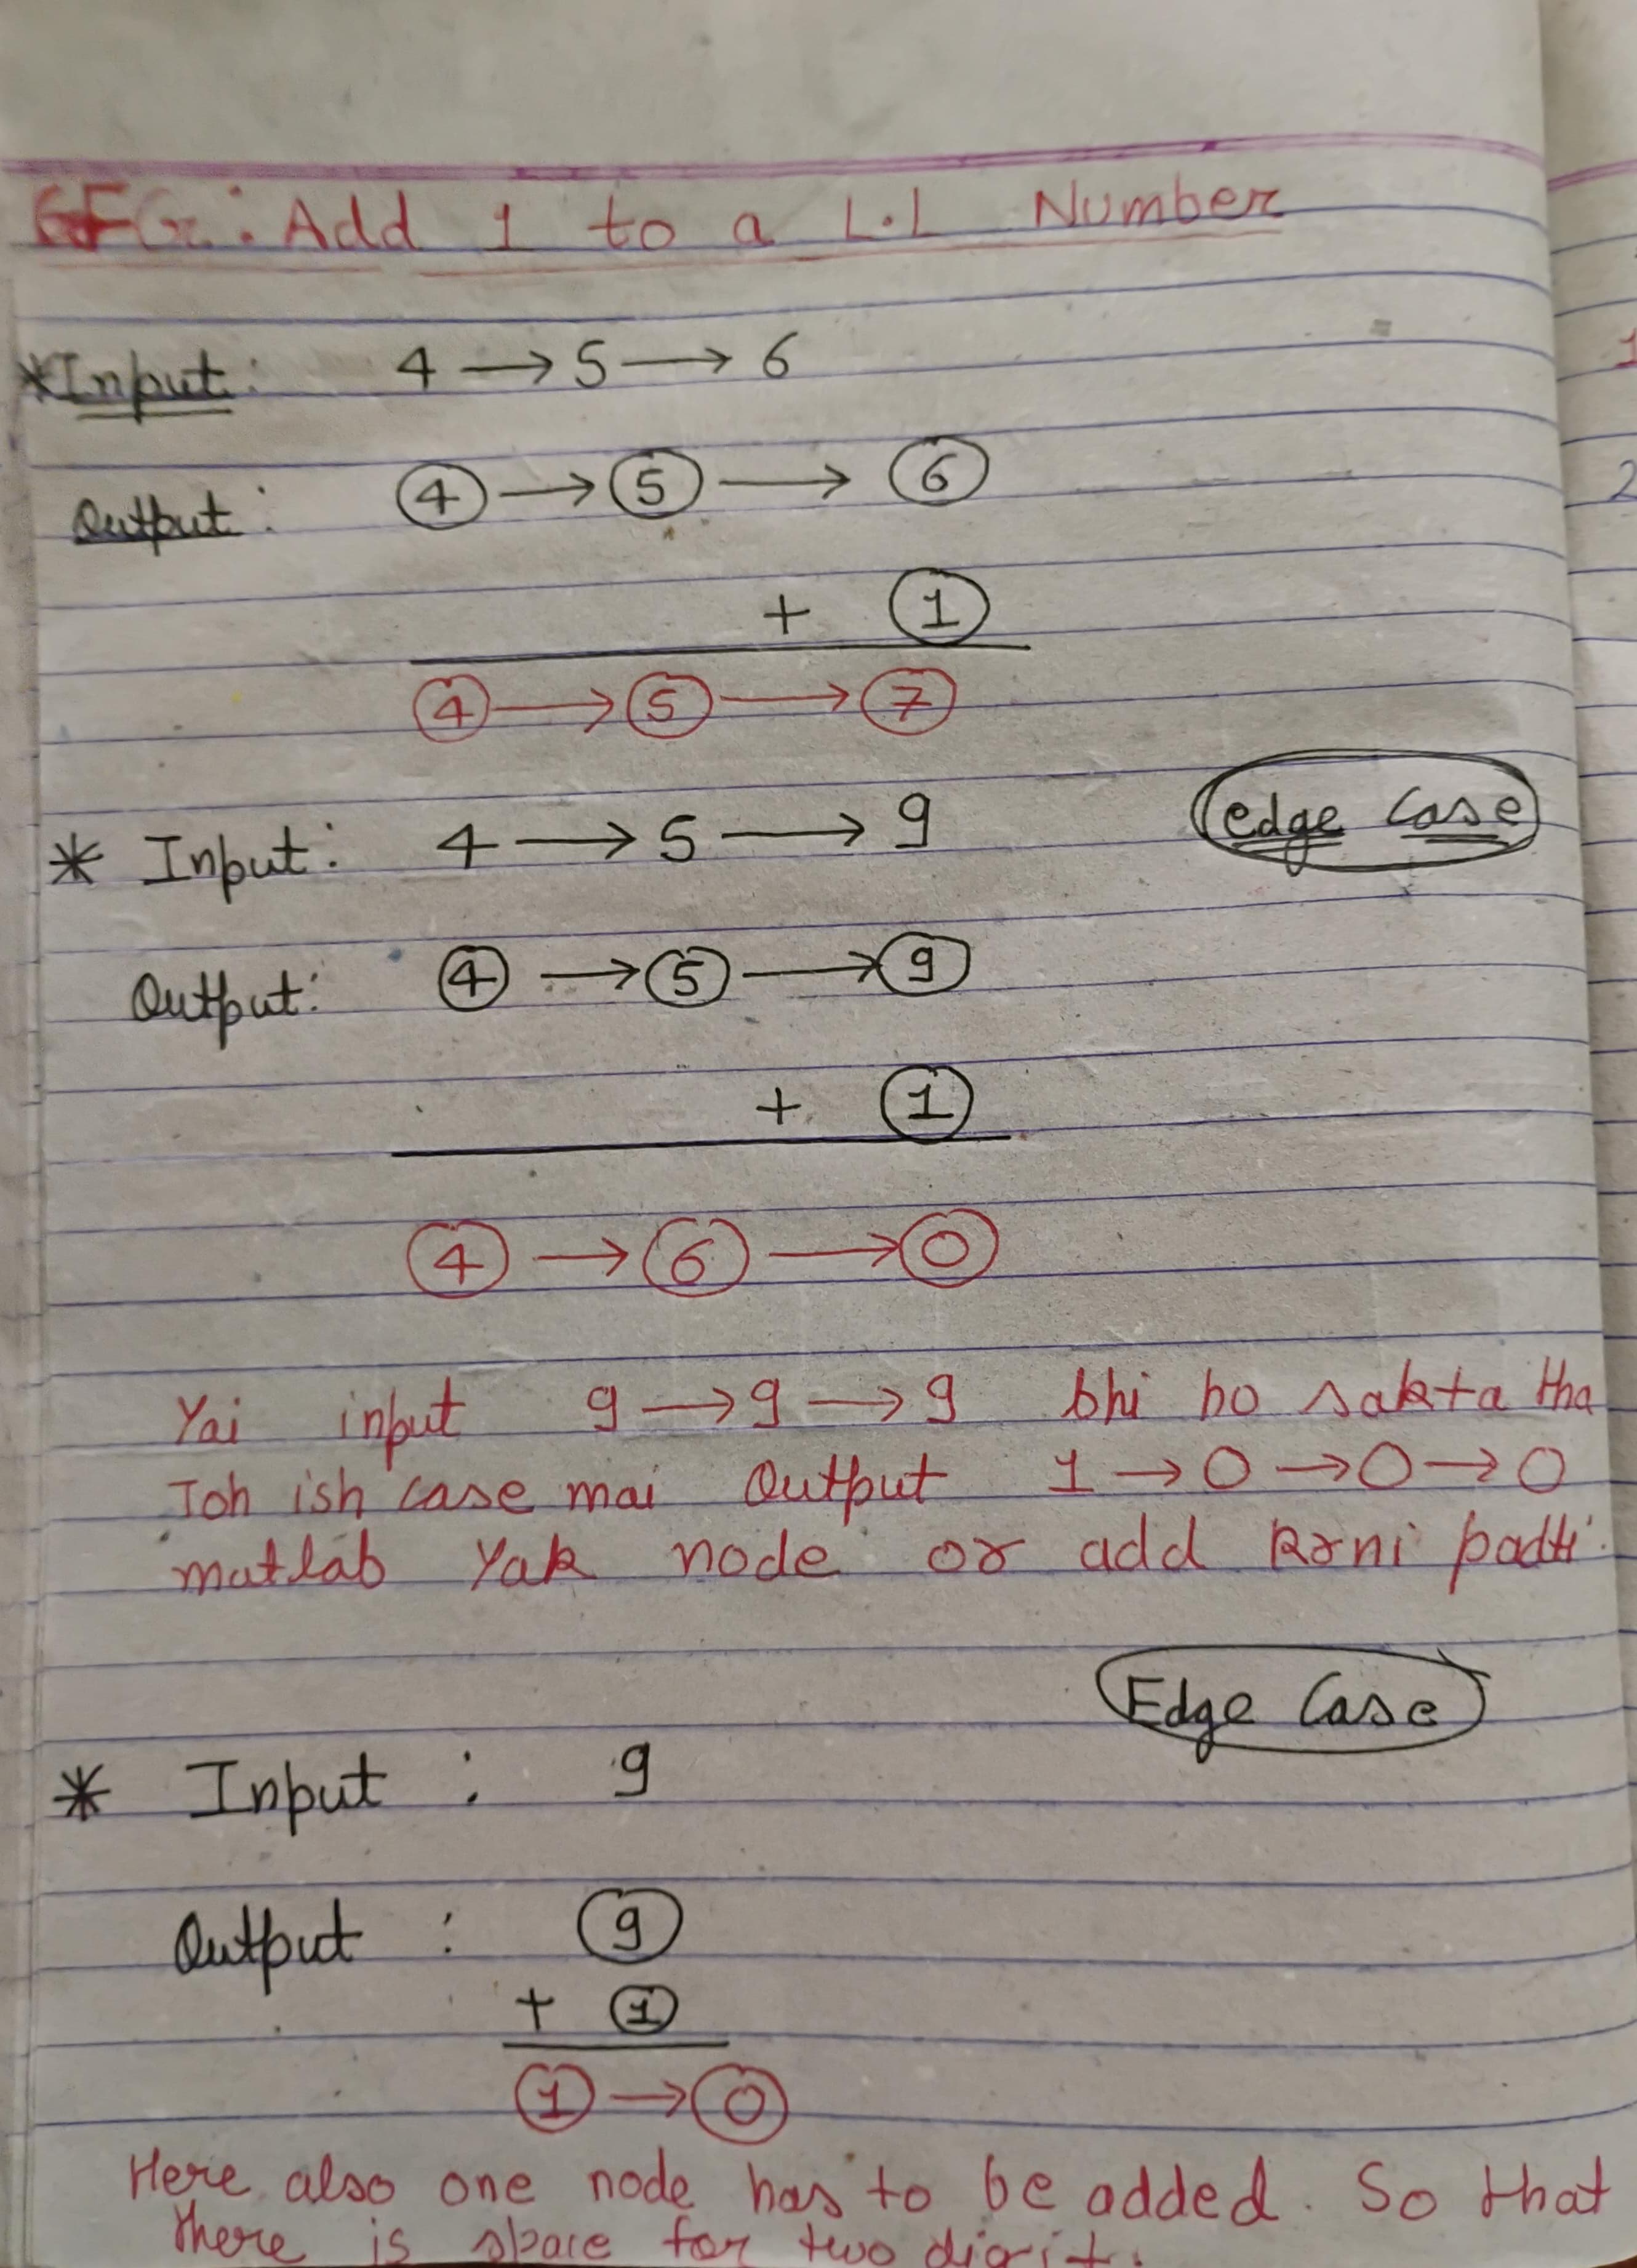 GFG: Add 1 to a L.L Number
*Input: 4 → 5 → 6
Output: 4 → 5 → 6
+ 1
4 → 5 → 7
* Input: 4 → 5 → 9
edge case
Output: 4 → 5 → 9
+ 1
4 → 6 → 0
Yai input 9 → 9 → 9 bhi ho sakta tha
Toh ish case mai Output 1 → 0 → 0 → 0
matlab Yak node or add krni padti.
Edge Case
* Input : 9
Output : 9
+ 1
1 → 0
Here also one node has to be added. So that
there is space for two digit.
1
2